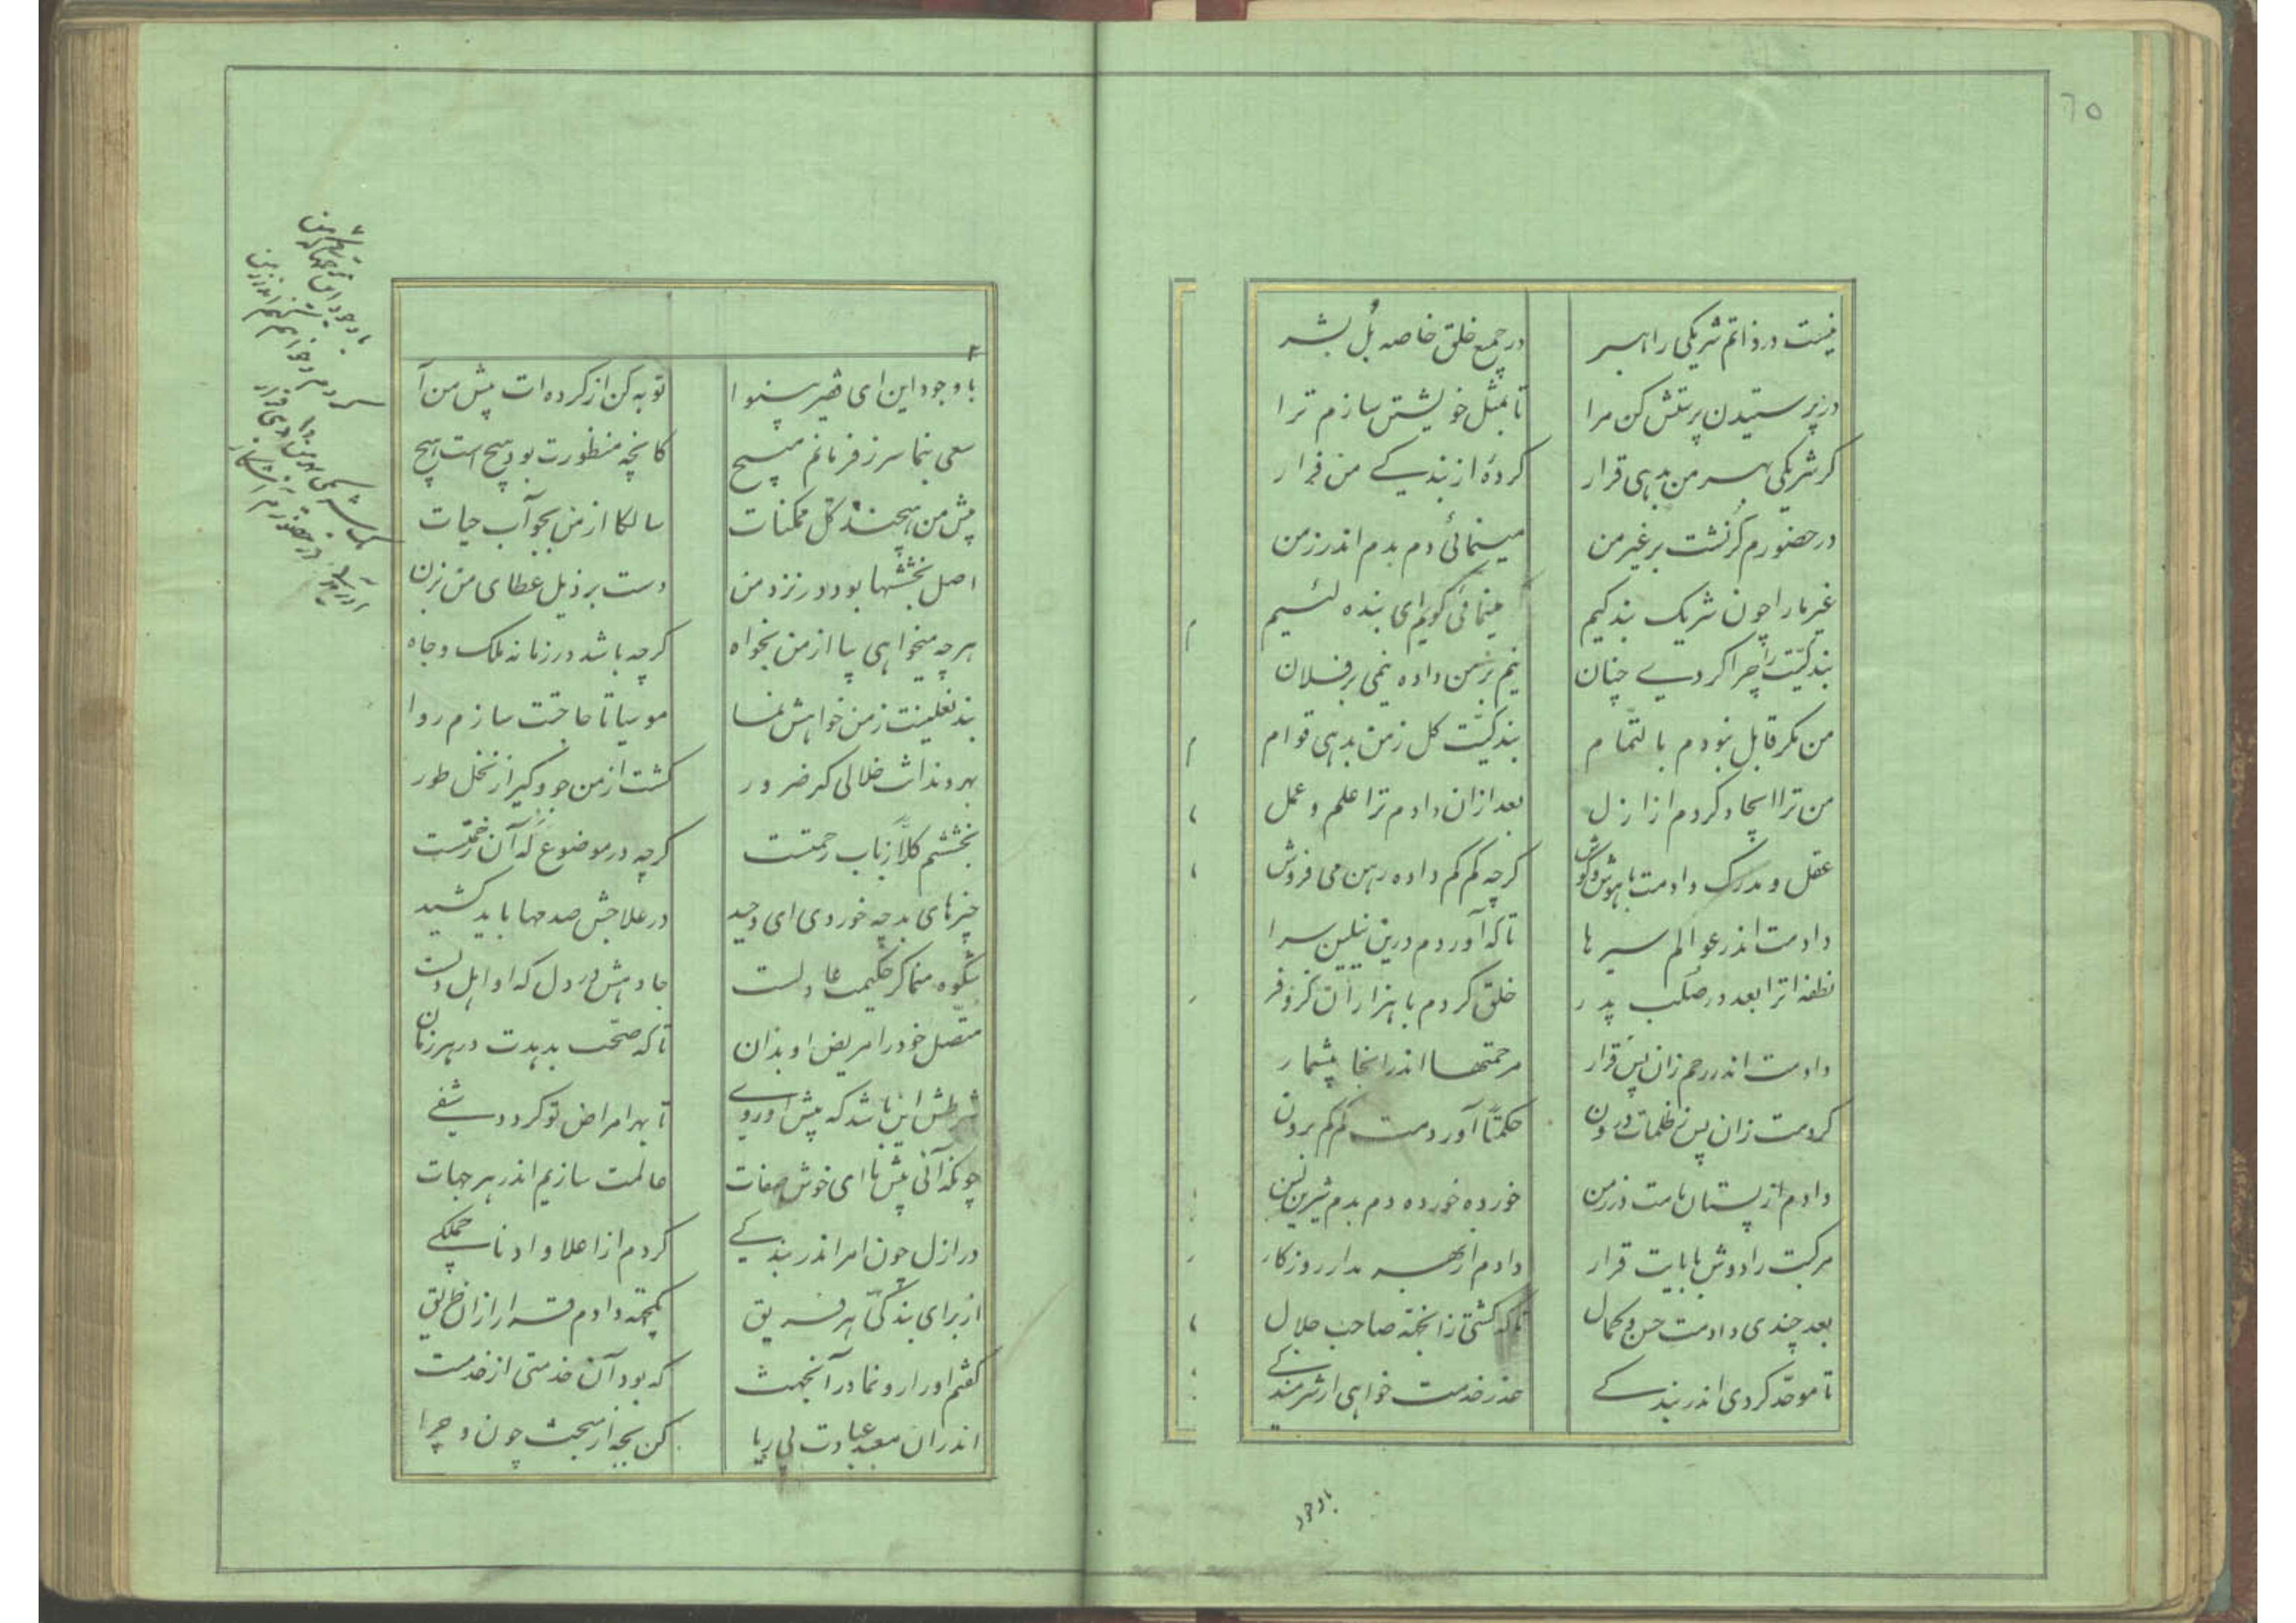 ٦٥
نیست در ذاتم شریکی راهبر در جمیع خلق خاصه بل بشر
در پرستیدن پرستش کن مرا تا بمثل خویشتن سازم ترا
گر شریکی بهر من بدهی قرار کردهٔ از بندگی من فرار
در حضورم کرنشت بر غیر من مینمائی دم بدم اندر زمن
غیر ما را چون شریک بندگیم مینمائی گویم ای بنده لئیم
بندگیت را چرا کردی چنان نیم بر من داده نیمی بر فلان
من مگر قابل نبودم بالتمام بندگیت کل زمن بدهی قوام
من ترا ایجاد کردم از ازل بعد ازان دادم ترا علم و عمل
عقل و مدرک دادمت با هوش و گوش گرچه کم کم داده رهن می فروش
دادمت اندر عوالم سیرها تا که آوردم درین نیلین سرا
نطفه اترا بعد در صلب پدر خلق کردم با هزاران کر و فر
دادمت اندر رحم زان پس قرار مرحمتها اندر انجا بیشمار
کردمت زان پس ز ظلمات درون حکمتاً آوردمت کم کم برون
دادم از پستان مامت در زمن خورده خورده دم بدم شیرین لبن
مرکبت را دوش بابایت قرار دادم از بهر مدار روزگار
بعد چندی دادمت حسن و کمال تا که گشتی زانجهته صاحب جلال
تا موحد گردی اندر بندگی عذر خدمت خواهی از شرمندگی
باوجود
باوجود این ای فقیر بینوا توبه کن از کرده ات پیش من آ
سعی بنما سر ز فرمانم مپیچ کانچه منظورت بود هیچ است هیچ
پیش من هیچند کل ممکنات سالکا از من بجو آب حیات
اصل بخششها بود در نزد من دست بر ذیل عطای من بزن
هرچه میخواهی بیا از من بخواه گرچه باشد در زمانه ملک و جاه
بند نعلینت ز من خواهش نما موسیا تا حاجتت سازم روا
بهر دندانت خلالی گر ضرور گشت از من جو و گیر از نخل طور
بخششم کلاً ز باب رحمتست گرچه در موضوع که آن زحمتست
چیزهای بد چه خوردی ای وحید در علاجش صدمها باید کشید
شکوه منما گر حکیمت عادلست جا دهش در دل که او اهل دلست
متصل خود را مریض او بدان تا که صحت بدهدت در هر زمان
شرطش این باشد که پیش او روی تا بهر امراض تو گردد شفی
چونکه آئی پیش ما ای خوش صفات عالمت سازیم اندر هر جهات
در ازل چون امر اندر بندگی کردم از اعلا و ادنا جملگی
از برای بندگی هر فریق یکجهته دادم قرار ازان طریق
گفتم او را رو نما در آنجهت که بود آن خدمتی از خدمت
اندران معبد عبادت بی ریا کن بجه از مبحث چون و چرا